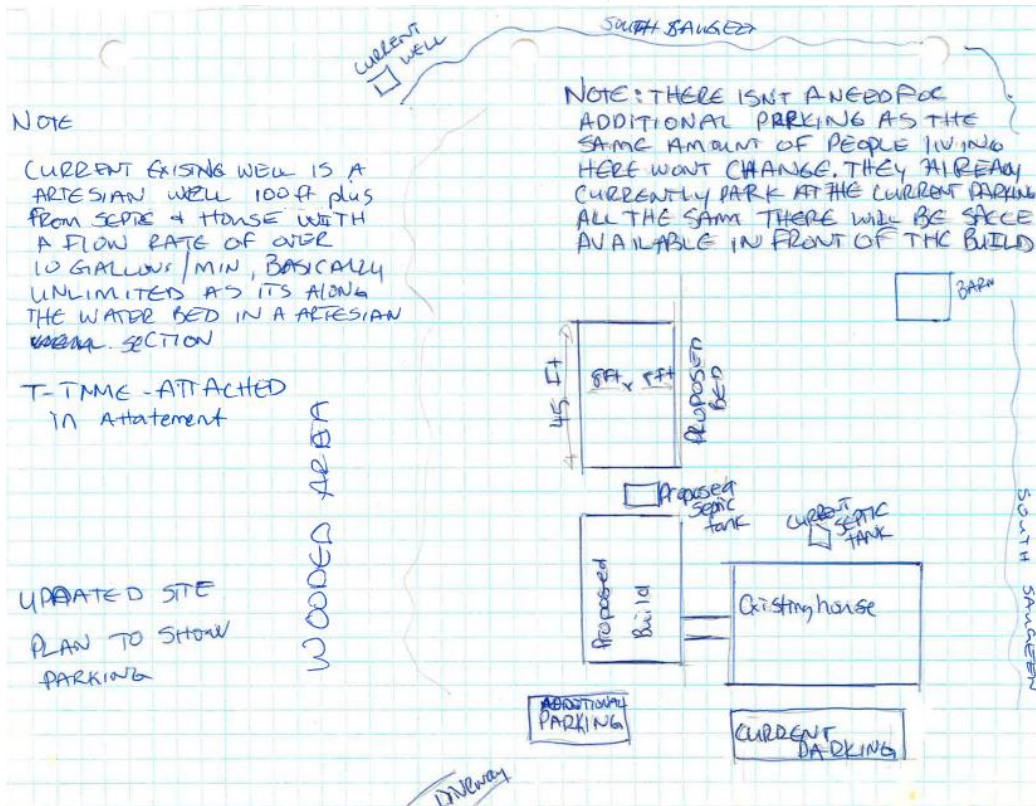 SOUTH SAUGEEN
CURRENT
WELL
NOTE
CURRENT EXISING WELL IS A
ARTESIAN WELL 100ft plus
FROM SEPTIC & HOUSE WITH
A FLOW RATE OF OVER
10 GALLONS/MIN, BASICALLY
UNLIMITED AS ITS ALONG
THE WATER BED IN A ARTESIAN
SECTION
T-TIME - ATTACHED
in Attatement
UPDATED SITE
PLAN TO SHOW
PARKING
WOODED AREA
NOTE: THERE ISNT A NEED FOR
ADDITIONAL PARKING AS THE
SAME AMOUNT OF PEOPLE LIVING
HERE WONT CHANGE. THEY ALREADY
CURRENTLY PARK AT THE CURRENT PARKING
ALL THE SAME THERE WILL BE SPACE
AVAILABLE IN FRONT OF THE BUILD
BARN
45 Ft
8Ft x 8Ft
PROPOSED
BED
Proposed
Septic
tank
CURRENT
SEPTIC
TANK
Proposed
Build
Existing house
SOUTH SAUGEEN
ADDITIONAL
PARKING
CURRENT
PARKING
Driveway